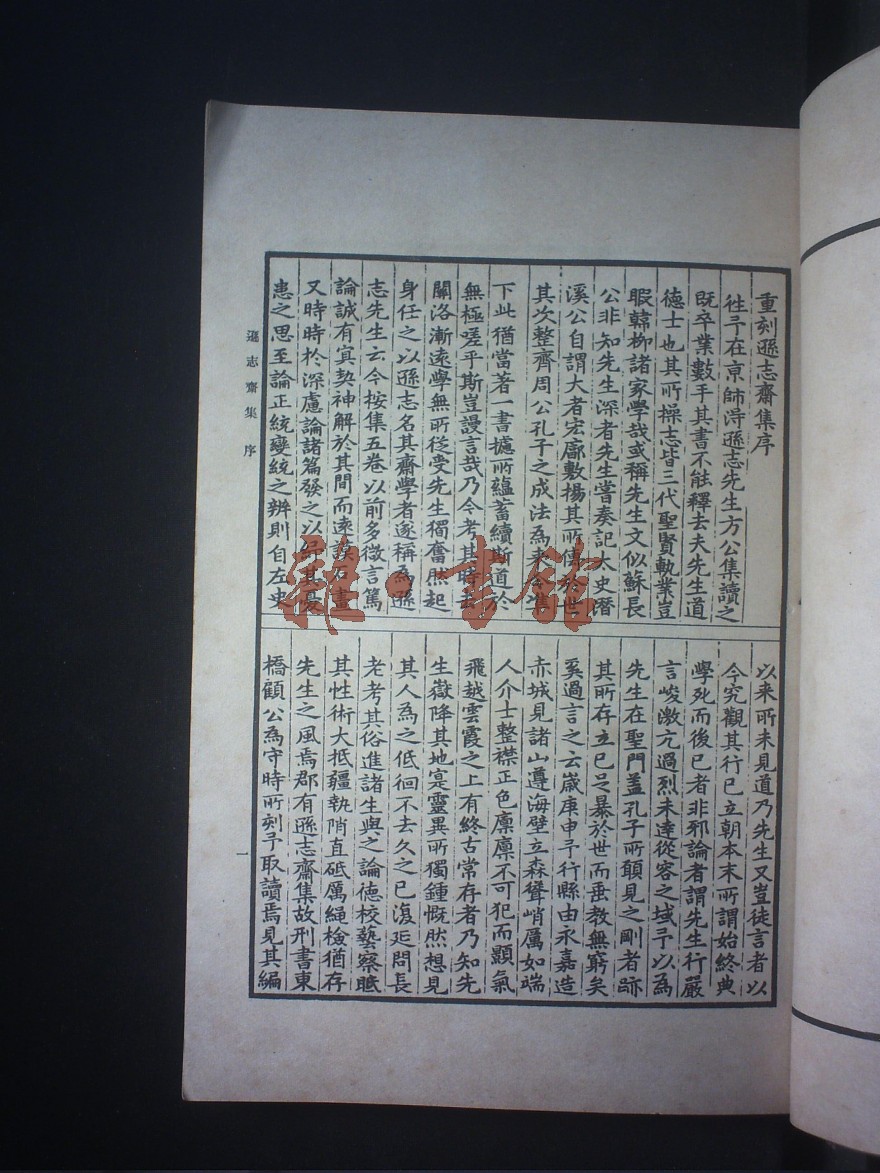 重刻遜志齋集序
徃予在京師淂遜志先生方公集讀之
既卒業數手其書不能釋去夫先生道
德士也其所操志皆三代聖賢執業豈
暇韓柳諸家學哉或稱先生文似蘇長
公非知先生深者先生嘗奏記太史潛
溪公自謂大者宏廓敷揚其所傳於世
其次整齊周公孔子之成法為來今準
下此猶當著一書攄所蘊蓄續斯道於
無極嗟乎斯豈謾言哉乃今考其時去
關洛漸遠學無所從受先生獨奮然起
身任之以遜志名其齋學者遂稱為遜
志先生云今按集五卷以前多微言篤
論誠有冥契神解於其間而遠謨石畫
又時時於深慮論諸篇發之以紓其憂
患之思至論正統變統之辨則自左史
以来所未見道乃先生又豈徒言者以
今究觀其行已立朝本末所謂始終典
學死而後已者非邪論者謂先生行嚴
言峻激亢過烈未達從容之域予以為
先生在聖門蓋孔子所願見之剛者跡
其所存立已足暴於世而垂教無窮矣
奚過言之云嵗庚申予行縣由永嘉造
赤城見諸山遵海壁立森聳峭厲如端
人介士整襟正色廩廩不可犯而顥氣
飛越雲霞之上有終古常存者乃知先
生嶽降其地寔靈異所獨鍾慨然想見
其人為之低徊不去久之已復延問長
老考其俗進諸生與之論德校藝察眡
其性術大抵彊執陗直砥厲繩檢猶存
先生之風焉郡有遜志齋集故刑書東
橋顧公為守時所刻予取讀焉見其編
遜志齋集 序
一
雜·書館